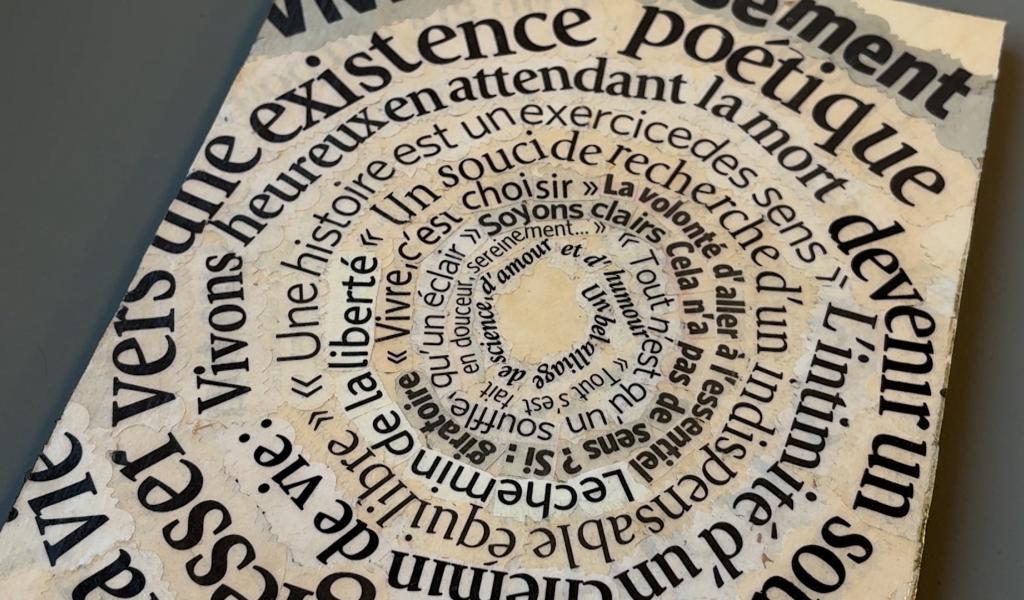 sement
vie
vers une existence poétique
devenir un
Vivons heureux en attendant la mort
L'intimité d'un chemin de vie :
« Une histoire est un exercice des sens »
« Un souci de recherche d'un indispensable équilibre »
Le chemin de la liberté
« Vivre, c'est choisir »
La volonté d'aller à l'essentiel
Soyons clairs
Cela n'a pas de sens ? Si : giratoire
« Tout n'est qu'un souffle, qu'un éclair »
« Tout s'est fait en douceur, sereinement... »
Un bel alliage de science, d'amour et d'humour